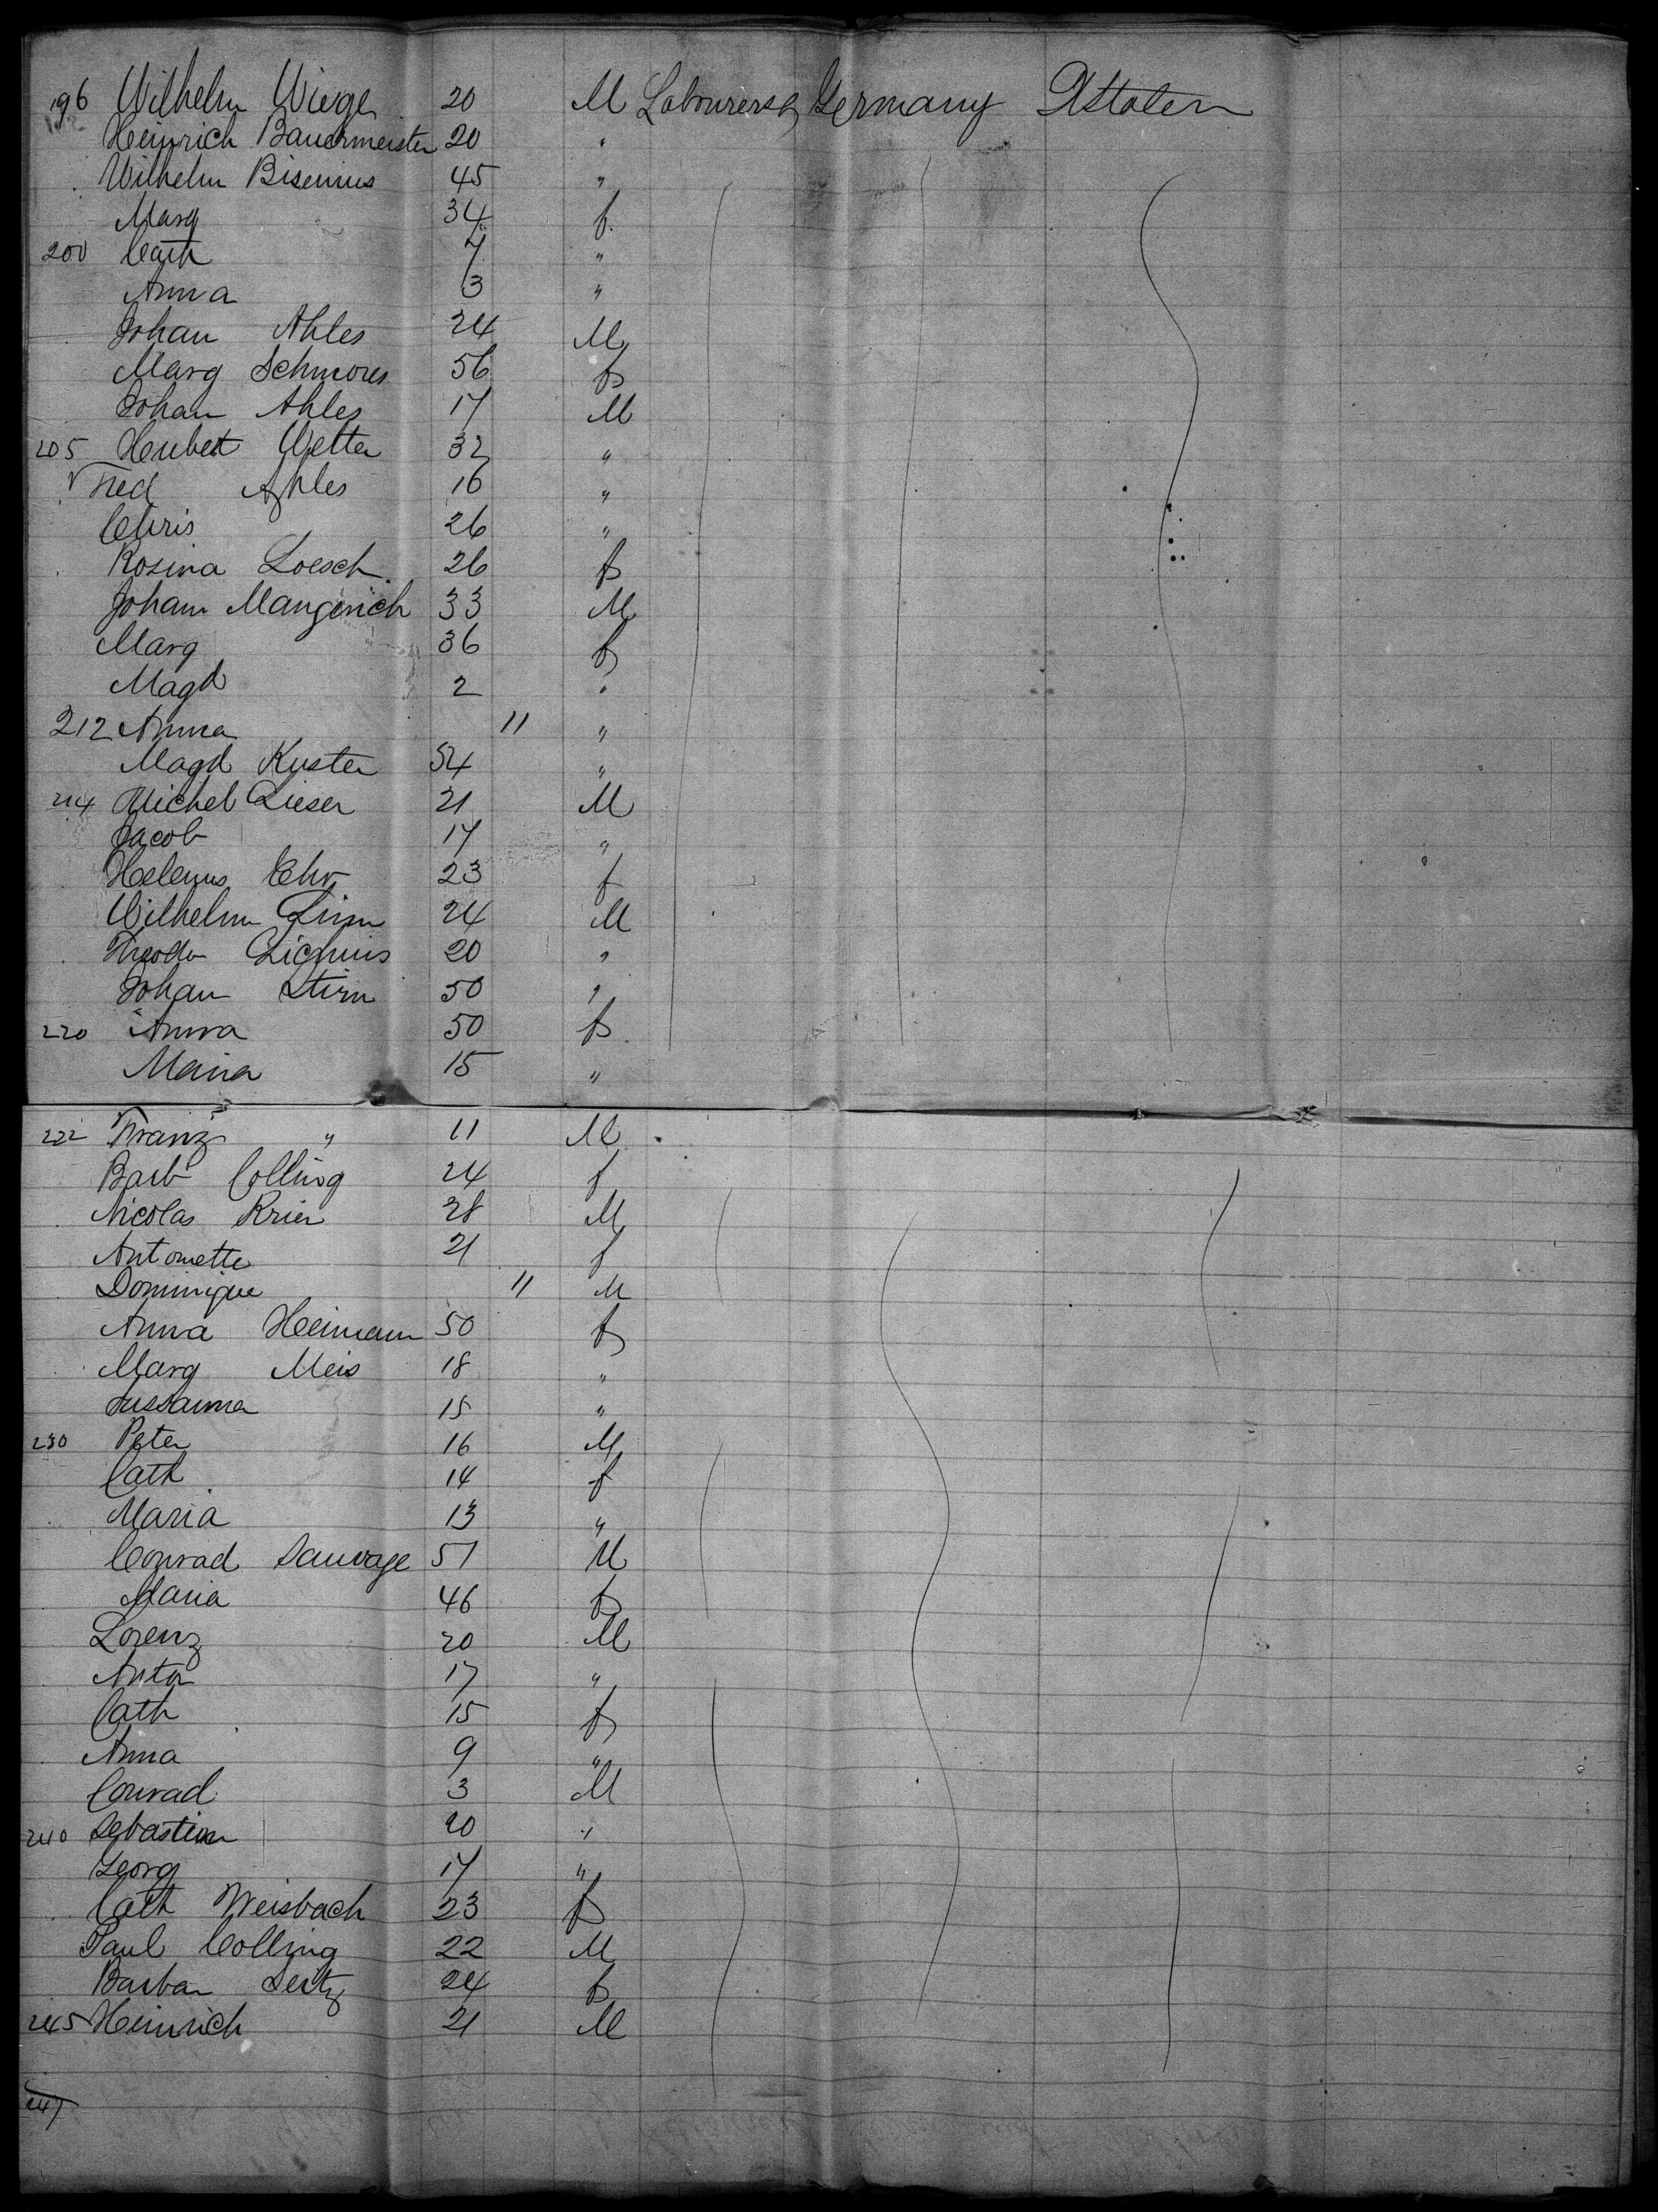 196 Wilhelm Wiege 20 M Labourers Germany Ustaten
Heinrich Bauermeister 20 "
Wilhelm Bisenius 45 "
Marg 34 f
200 Cath 7 "
Anna 3 "
Johan Ahles 24 M
Marg Schmores 56 f
Johan Ahles 17 M
205 Hubert Wetter 32 "
Fred Ahles 16 "
Chris 26 "
Rosina Loesch 26 f
Johann Mangerich 33 M
Marg 36 f
Magd 2 "
212 Anna 11 "
Magd Kuster 54 "
214 Michel Lieser 21 M
Jacob 17 "
Ehr 23 f
Wilhelm 24 M
Theodo 20 "
Johan Stirn 50 "
220 Anna 50 f
Maria 15 "
222 Franz " 11 M
Barb Colling 24 f
Nicolas Krier 28 M
Antonette 21 f
Dominique 11 M
Anna Heimann 50 f
Marg Meis 18 "
Sussanna 15 "
230 Peter 16 M
Cath 14 f
Maria 13 "
Conrad Sauvage 51 M
Maria 46 f
Lorenz 20 M
Anton 17 "
Cath 15 f
Anna 9 "
Conrad 3 M
240 Sebastian 20 "
Georg 17 "
Cath Weisbach 23 f
Paul Colling 22 M
Barbar Seitz 24 f
245 Heinrich 21 M
247